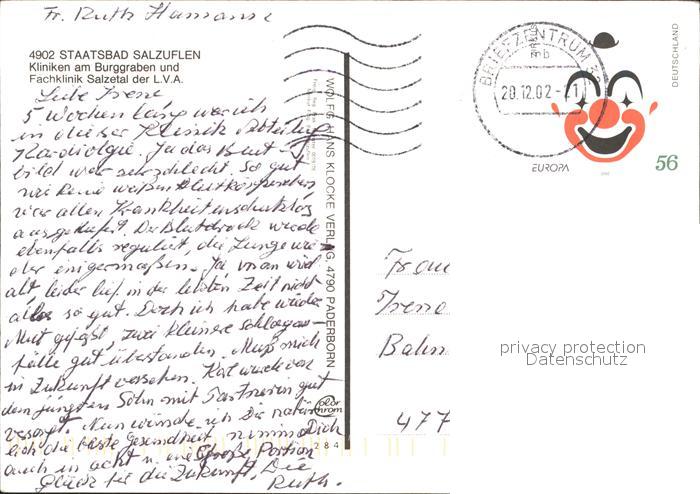 Fr. Ruth Hamann
4902 STAATSBAD SALZUFLEN
Kliniken am Burggraben und
Fachklinik Salzetal der L.V.A.
Liebe Irene
5 Wochen lang war ich
in dieser Klinik Abteilung
Kardiologie. Ja das Blut-
bild war sehr schlecht. So gut
wie keine weißen Blutkörperchen
war allen Krankheiten schutzlos
ausgeliefert. Der Blutdruck wurde
ebenfalls reguliert, die Lunge wie-
der einigermaßen. Ja, man wird
alt, leider lief in der letzten Zeit nicht
alles so gut. Doch ich habe wieder
Mut gefaßt, zwei kleinere Schlagan-
fälle gut überstanden. Muß mich
in Zukunft vorsehen. Kat wurde von
dem jüngsten Sohn mit Partnerin gut
versorgt. Nun wünsche ich Dir natür-
lich die beste Gesundheit, nimm Dich
auch in acht u. eine große Portion
Glück für die Zukunft. Die
Ruth.
WOLFG. HANS KLOCKE VERLAG, 4790 PADERBORN
color
chrom
284
BRIEFZENTRUM
mb
20.12.02-21
DEUTSCHLAND
EUROPA
56
Frau
Irene
Bahn
477
privacy protection
Datenschutz